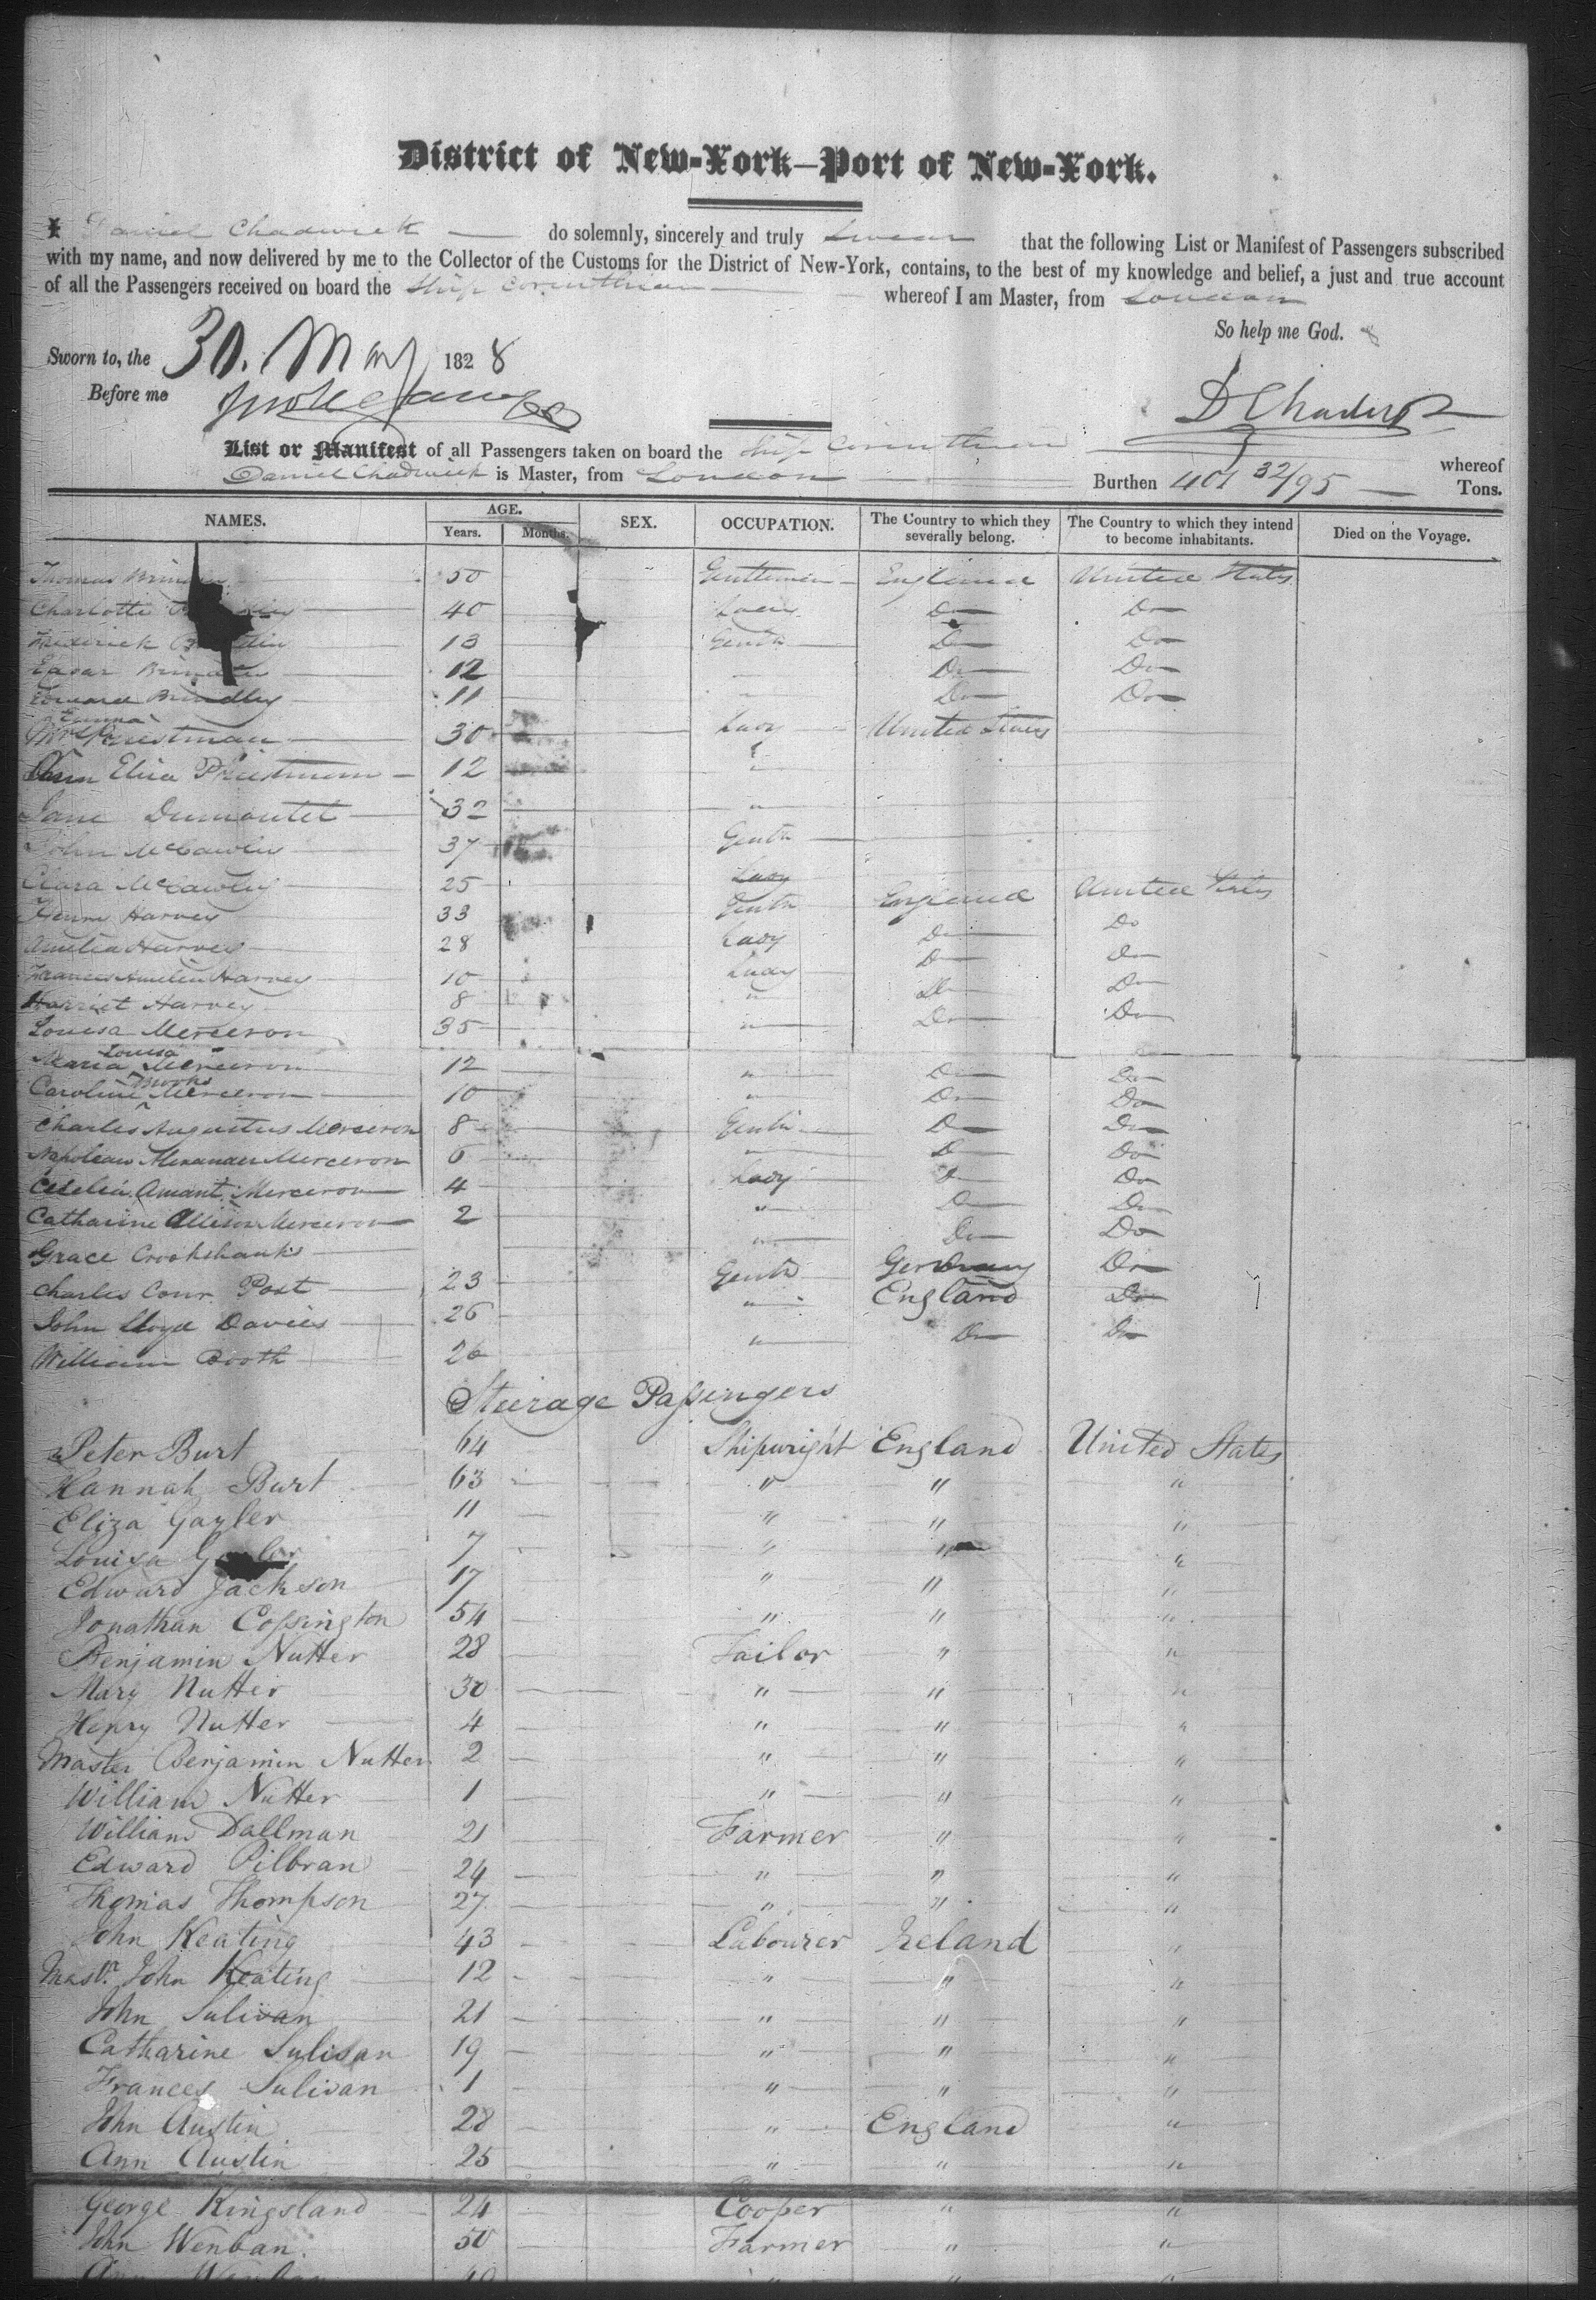 District of New-York—Port of New-York.
I Daniel Chadwick do solemnly, sincerely and truly swear that the following List or Manifest of Passengers subscribed
with my name, and now delivered by me to the Collector of the Customs for the District of New-York, contains, to the best of my knowledge and belief, a just and true account
of all the Passengers received on board the Ship Corinthian whereof I am Master, from London
So help me God.
Sworn to, the 30. May 1828
Before me
D Chadwick
List or Manifest of all Passengers taken on board the Ship Corinthian whereof
Daniel Chadwick is Master, from London Burthen 401 32/95 Tons.
NAMES. AGE. SEX. OCCUPATION. The Country to which they severally belong. The Country to which they intend to become inhabitants. Died on the Voyage.
Years. Months.
Thomas 50 Gentleman England United States
Charlotte 40 Lady Do Do
Frederick 13 Gentn Do Do
Edgar 12 Do Do
Edward Brindley 11 Do Do
Mrs Emma Priestman 30 Lady United States
Ann Eliza Priestman 12 "
Jane Dumoutet 32 "
John McCawley 37 Gentn
Clara McCawley 25 Lady
Henry Harvey 33 Gentn England United States
Amelia Harvey 28 Lady Do Do
Frances Amelia Harvey 10 Lady Do Do
Harriet Harvey 8 " Do Do
Louisa Merceron 35 " Do Do
Maria Louisa Merceron 12 " Do Do
Caroline Brooks Merceron 10 " Do Do
Charles Augustus Merceron 8 Gentn Do Do
Napoleon Alexander Merceron 6 " Do Do
Cecelia Amant Merceron 4 Lady Do Do
Catharine Allison Merceron 2 " Do Do
Grace Crookshanks " Do Do
Charles Conr Post 23 Gentn Germany Do
John Lloyd Davies 26 " England Do
William Booth 26 " Do Do
Steerage Passengers
Peter Burt 64 Shipwright England United States
Hannah Burt 63 " " "
Eliza Gayler 11 " " "
Louisa 7 " " "
Edward Jackson 17 " " "
Jonathan Cossington 54 " " "
Benjamin Nutter 28 Tailor " "
Mary Nutter 30 " " "
Henry Nutter 4 " " "
Master Benjamin Nutter 2 " " "
William Nutter 1 " " "
William Dallman 21 Farmer " "
Edward Pilbran 24 " " "
Thomas Thompson 27 " " "
John Keating 43 Labourer Ireland "
Mastr. John Keating 12 " " "
John Sulivan 21 " " "
Catharine Sulivan 19 " " "
Frances Sulivan 1 " " "
John Austin 28 " England "
Ann Austin 25 " " "
George Kingsland 24 Cooper " "
John Wenban. 50 Farmer " "
Ann Wenban